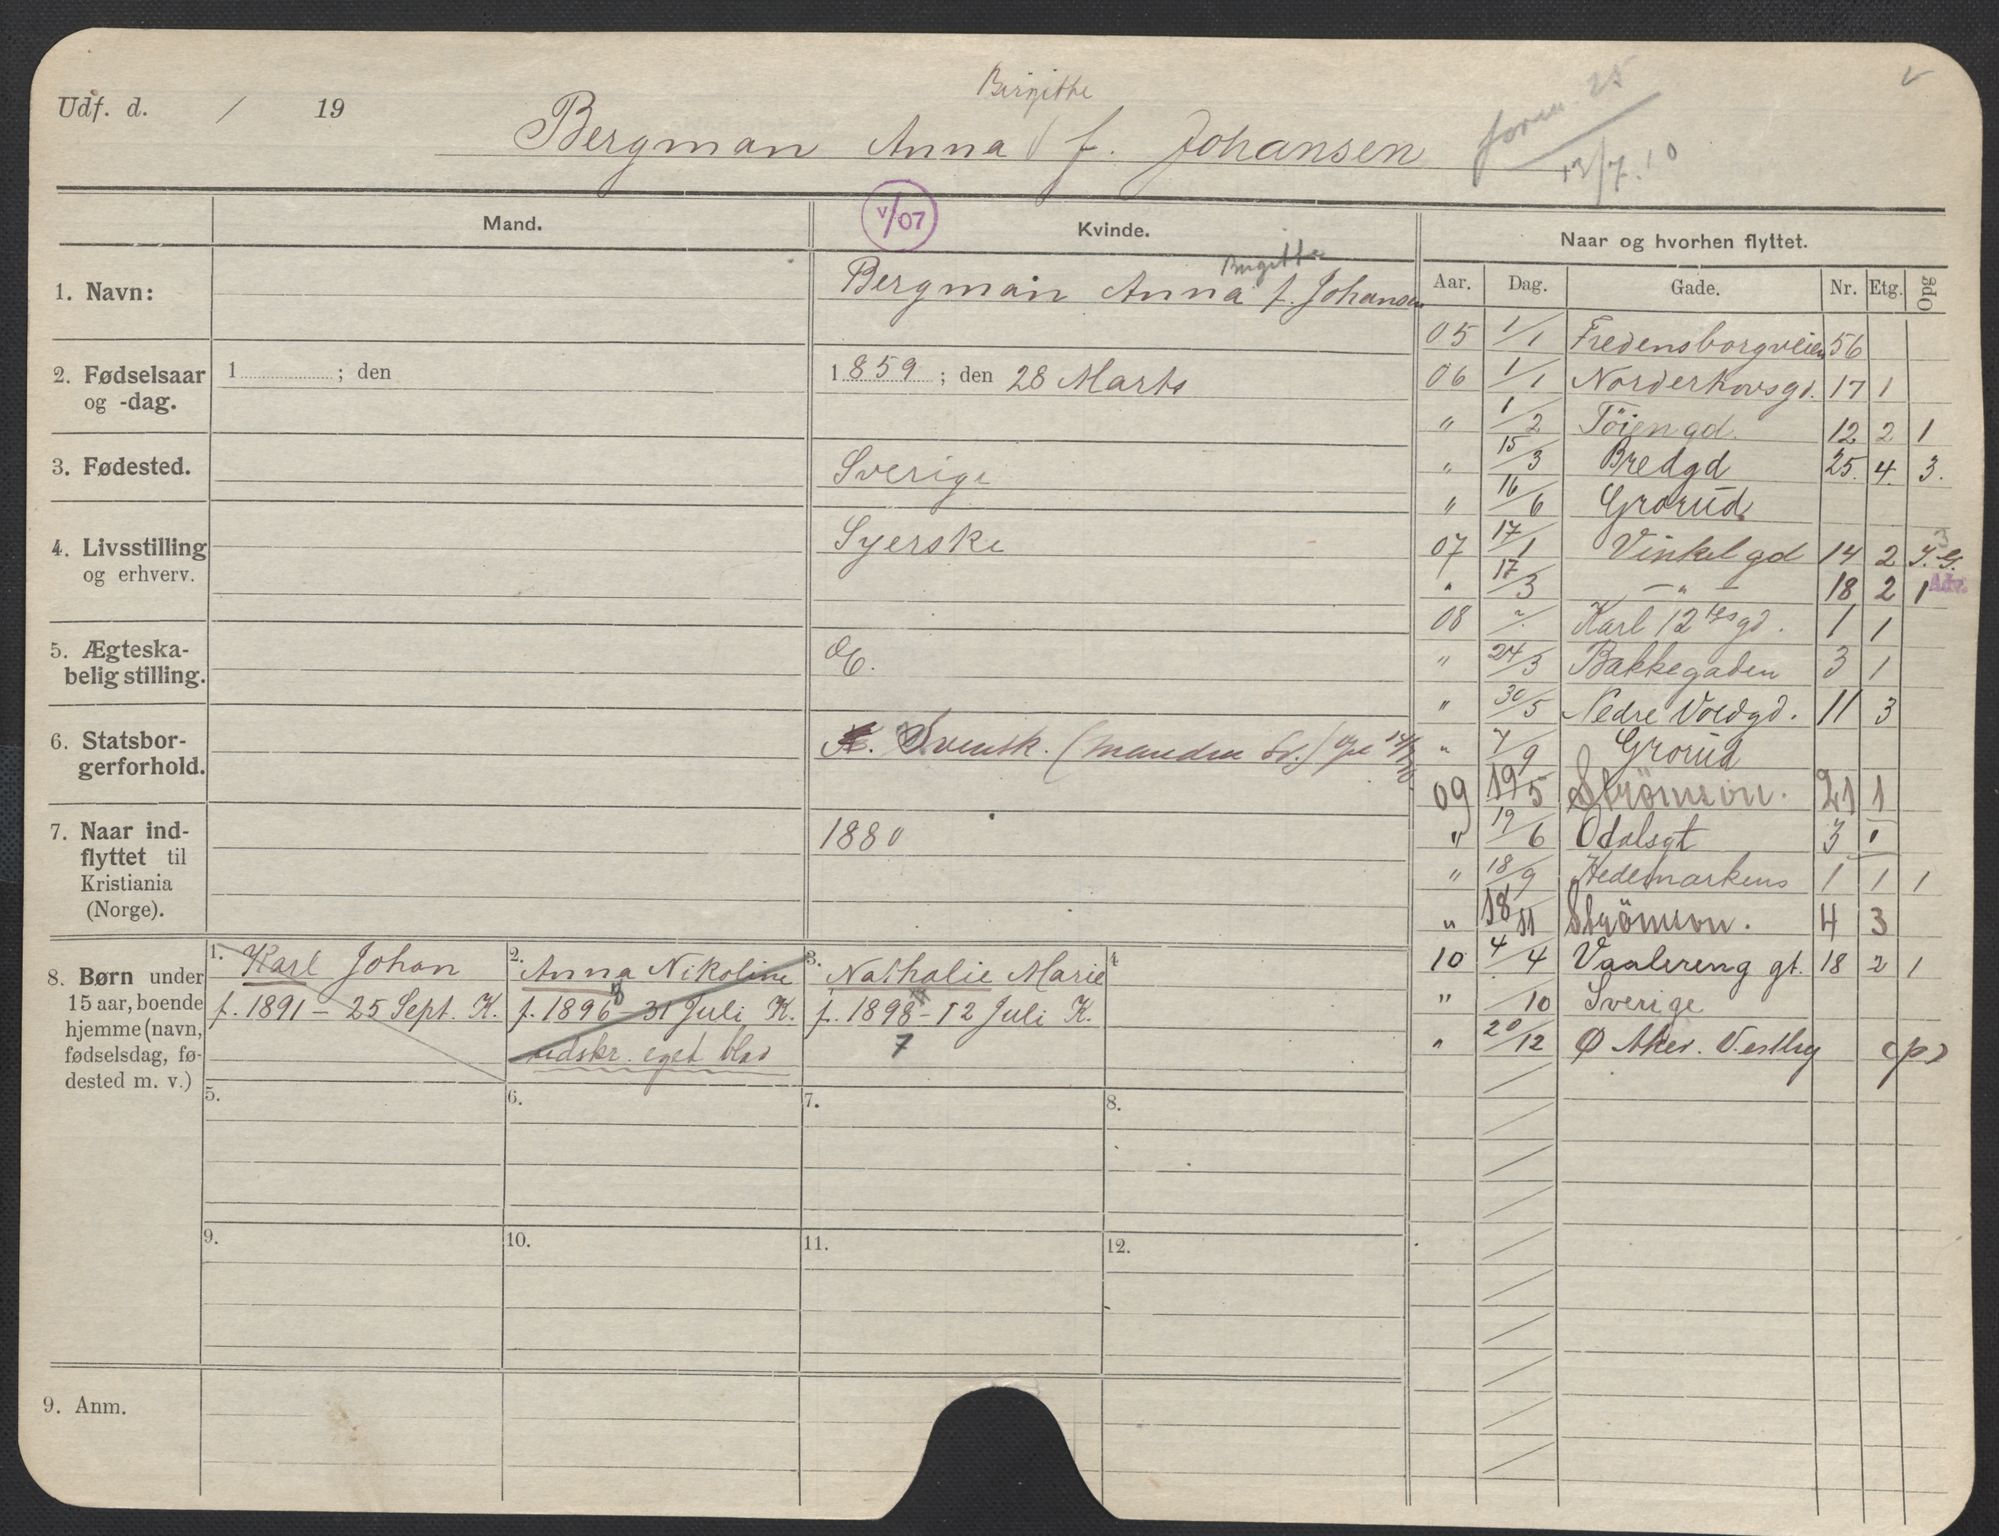 Birgitte
Udf. d. / 19
Bergman Anna f. Johansen
13/7.10
v/07
Mand.
Kvinde.
Naar og hvorhen flyttet.
Aar. Dag. Gade. Nr. Etg. Opg
1. Navn:
Birgitte
Bergman Anna f. Johansen
2. Fødselsaar og -dag.
1 ; den
1859 ; den 28 Marts
3. Fødested.
Sverige
4. Livsstilling og erhverv.
Syerske
5. Ægteska-
belig stilling.
6. Statsbor-
gerforhold.
Svensk.
7. Naar ind-
flyttet til
Kristiania
(Norge).
1880
05 1/1 Fredensborgveien 56
06 1/1 Norderhovsgd. 17 1
" 1/2 Töiengd. 12 2 1
" 15/3 Bredgd 25. 4. 3.
" 16/6 Grorud
07 17/1 Vinkelgd 14 2
" 17/3 — " — 18 2 1 Adv.
08 Karl 12tesgd. 1 1
" 24/3 Bakkegaden 3 1
" 30/5 Nedre Voldgd. 11 3
" 7/9 Grorud
09 19/5 Strömson. 21 1
" 19/6 Odalsgt 3 1
" 18/9 Hedemarkens 1 1 1
" 18/11 Strömson. 4 3
10 4/4 Vaalereng gt. 18 2 1
" /10 Sverige
" 20/12 Ø Aker. Vestby (p)
8. Børn under
15 aar, boende
hjemme (navn,
fødselsdag, fø-
dested m. v.)
1. Karl Johan
f. 1891 - 25 Sept. K.
2. Anna Nikoline
f. 1896 - 31 Juli K.
udskr. eget blad
3. Nathalie Marie
f. 1898 - 12 Juli K.
7
4
5.
6.
7.
8.
9.
10.
11.
12.
9. Anm.